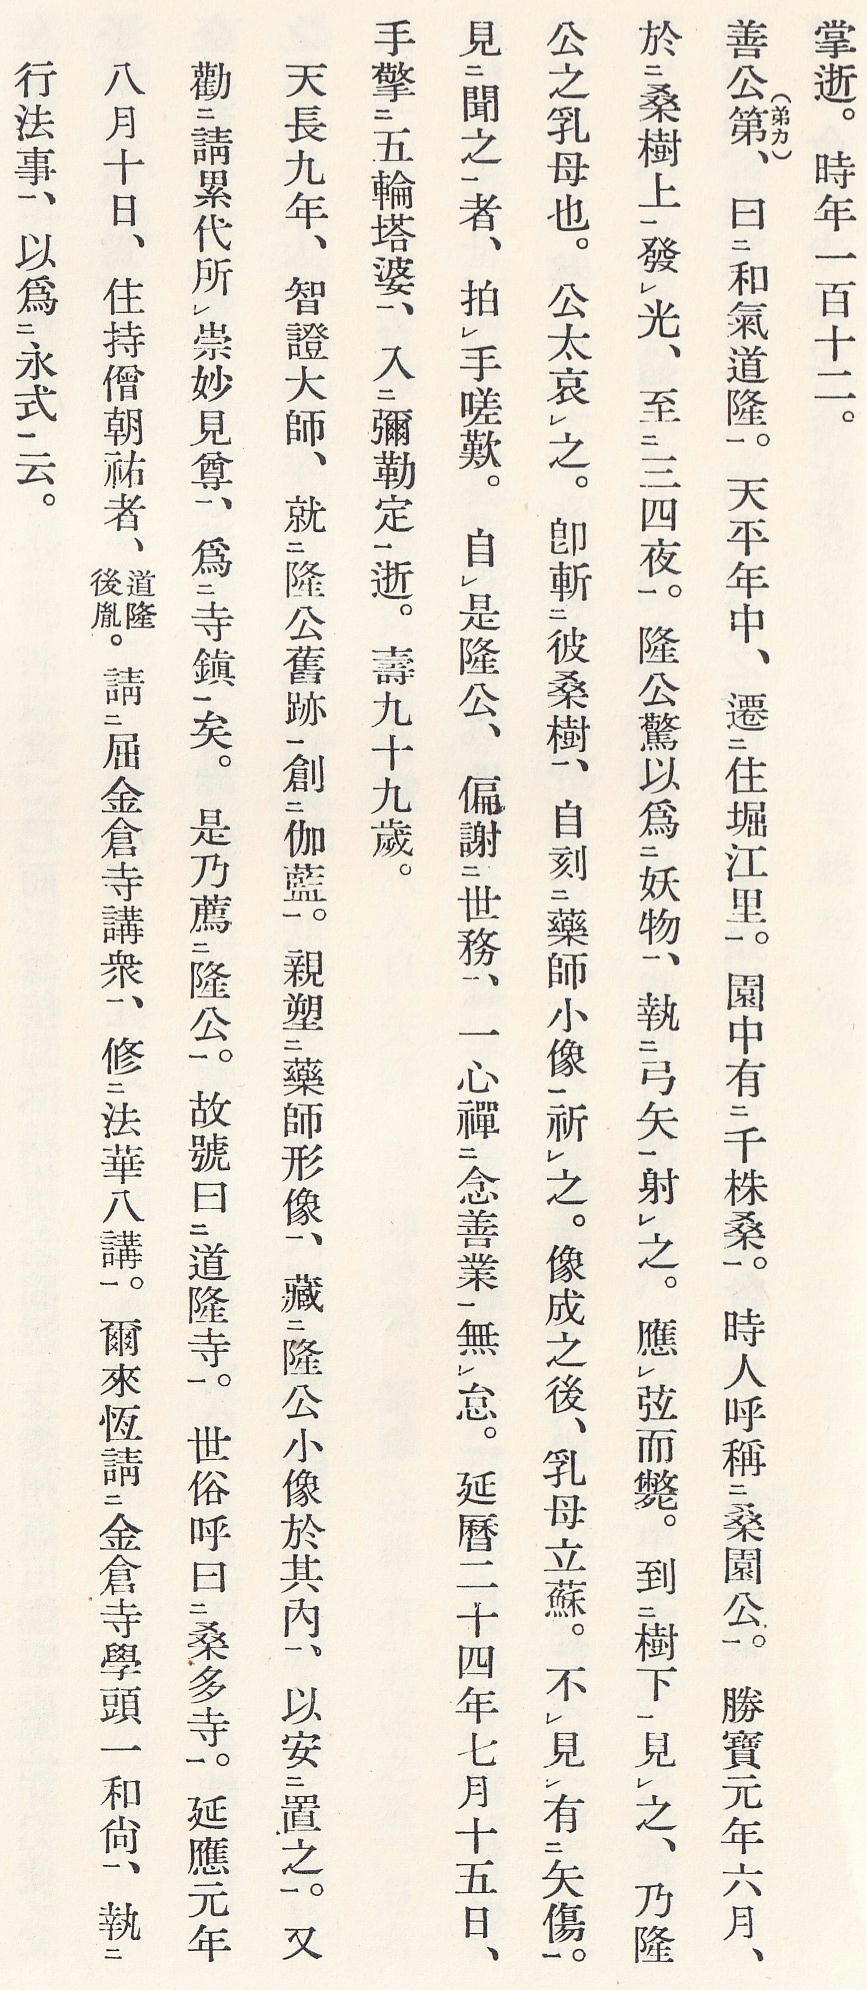 掌逝。時年一百十二。
善公第(弟カ)、曰㆓和氣道隆㆒。天平年中、遷㆓住堀江里㆒。園中有㆓千株桑㆒。時人呼稱㆓桑園公㆒。勝寶元年六月、
於㆓桑樹上㆒發㆑光、至㆓三四夜㆒。隆公驚以爲㆓妖物㆒、執㆓弓矢㆒射㆑之。應㆑弦而斃。到㆓樹下㆒見㆑之、乃隆
公之乳母也。公太哀㆑之。卽斬㆓彼桑樹㆒、自刻㆓藥師小像㆒祈㆑之。像成之後、乳母立蘇。不㆑見㆑有㆓矢傷㆒。
見㆓聞之㆒者、拍㆑手嗟歎。自㆑是隆公、偏謝㆓世務㆒、一心禪㆓念善業㆒無㆑怠。延曆二十四年七月十五日、
手擎㆓五輪塔婆㆒、入㆓彌勒定㆒逝。壽九十九歲。
天長九年、智證大師、就㆓隆公舊跡㆒創㆓伽藍㆒。親塑㆓藥師形像㆒、藏㆓隆公小像於其內㆒、以安㆓置之㆒。又
勸㆓請累代所㆑崇妙見尊㆒、爲㆓寺鎭㆒矣。是乃薦㆓隆公㆒。故號曰㆓道隆寺㆒。世俗呼曰㆓桑多寺㆒。延應元年
八月十日、住持僧朝祐者、道隆後胤。請㆓屈金倉寺講衆㆒、修㆓法華八講㆒。爾來恆請㆓金倉寺學頭一和尙㆒、執㆓
行法事㆒、以爲㆓永式㆒云。